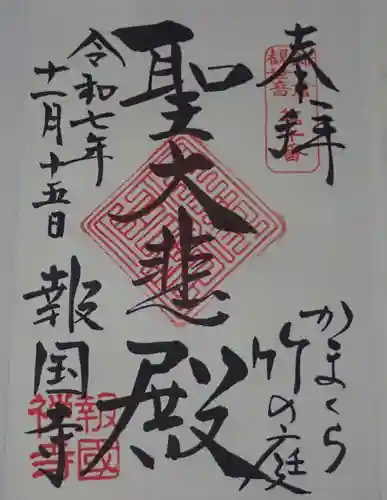 奉拝
かまくら
竹の庭
聖大悲殿
令和七年
十一月十五日
報国寺
報國
禅寺